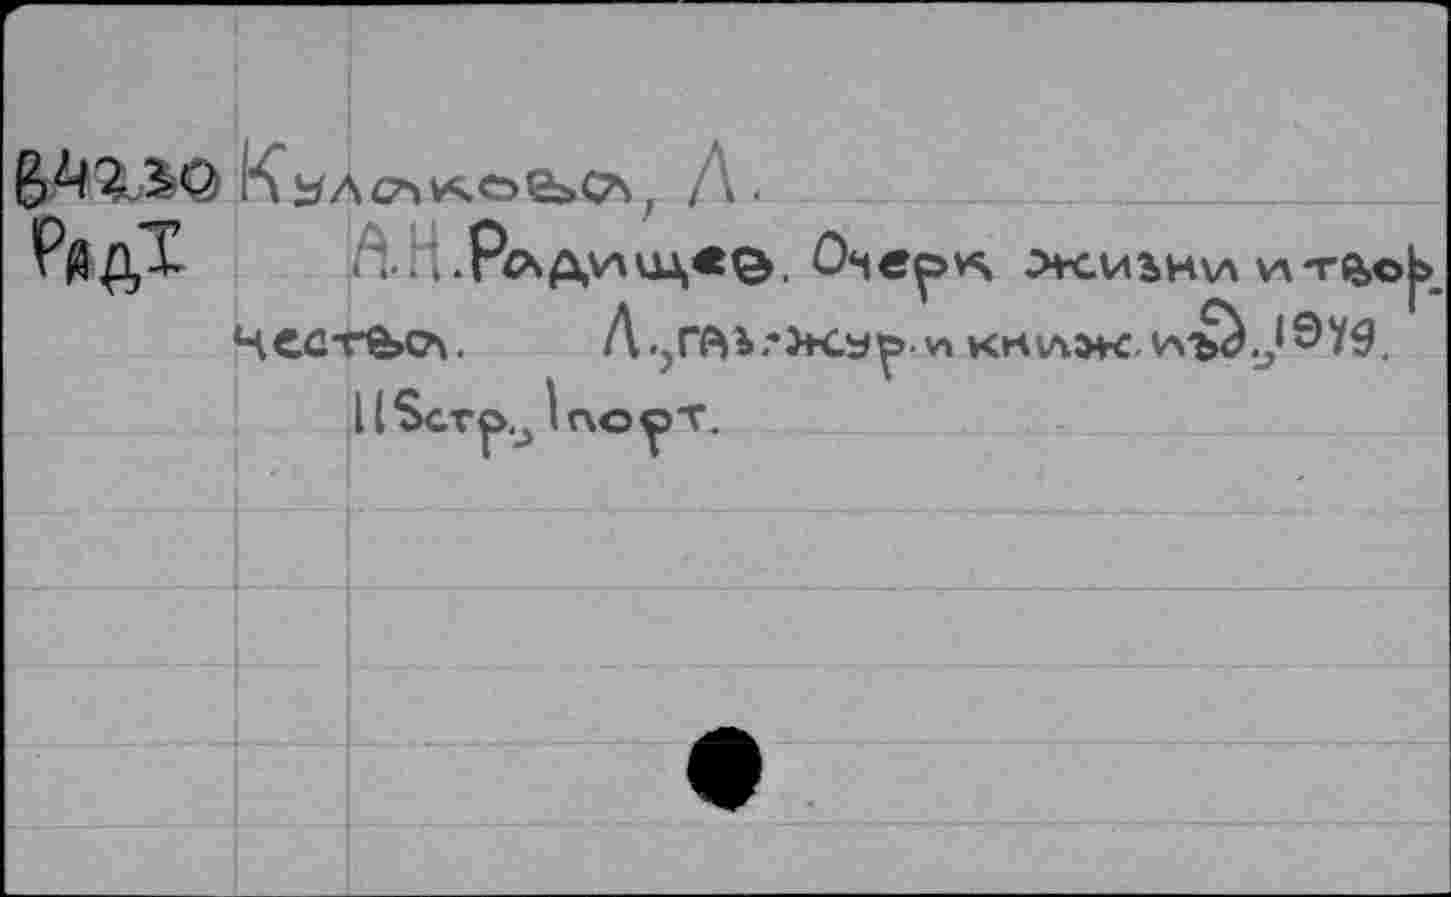 В4230 Кулакова, Л.
РадI А.Н.Радищев. Очерк жизни и твор-
чества. Л.,Газ.-жур.и книж.изд.,1949.
115стр.,1порт.